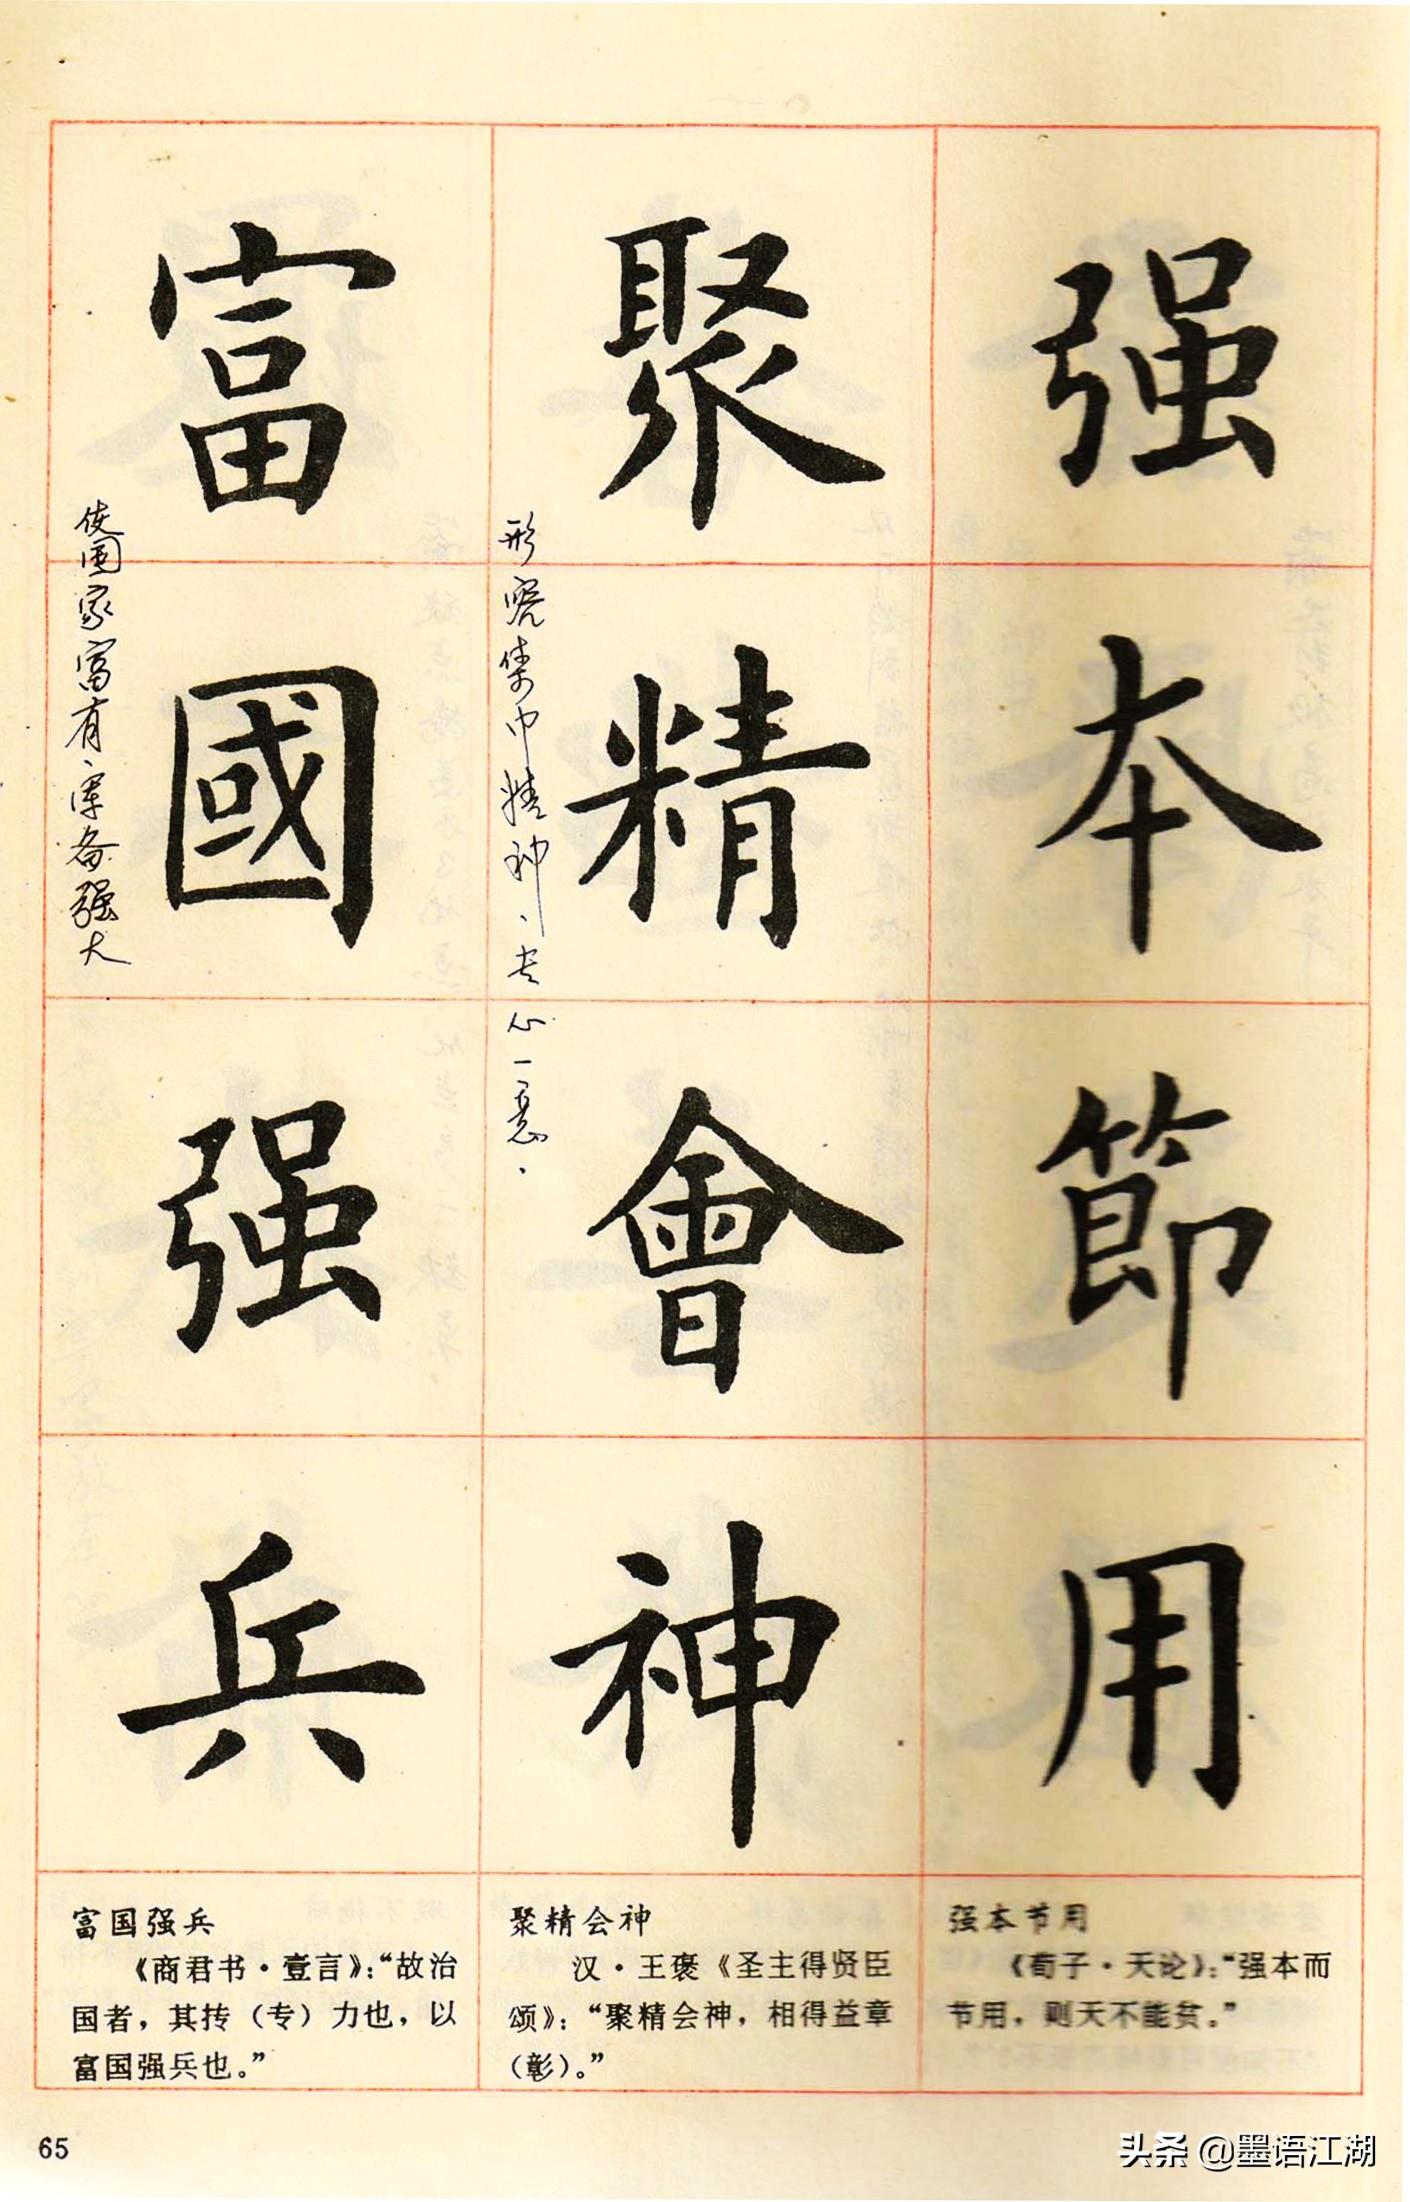 强本節用
聚精會神
形容集中精神、专心一意.
富國强兵
使国家富有、军备强大
强本节用
《荀子·天论》：“强本而
节用，则天不能贫。”
聚精会神
汉·王褒《圣主得贤臣
颂》：“聚精会神，相得益章
（彰）。”
富国强兵
《商君书·壹言》：“故治
国者，其抟（专）力也，以
富国强兵也。”
65
头条 @墨语江湖